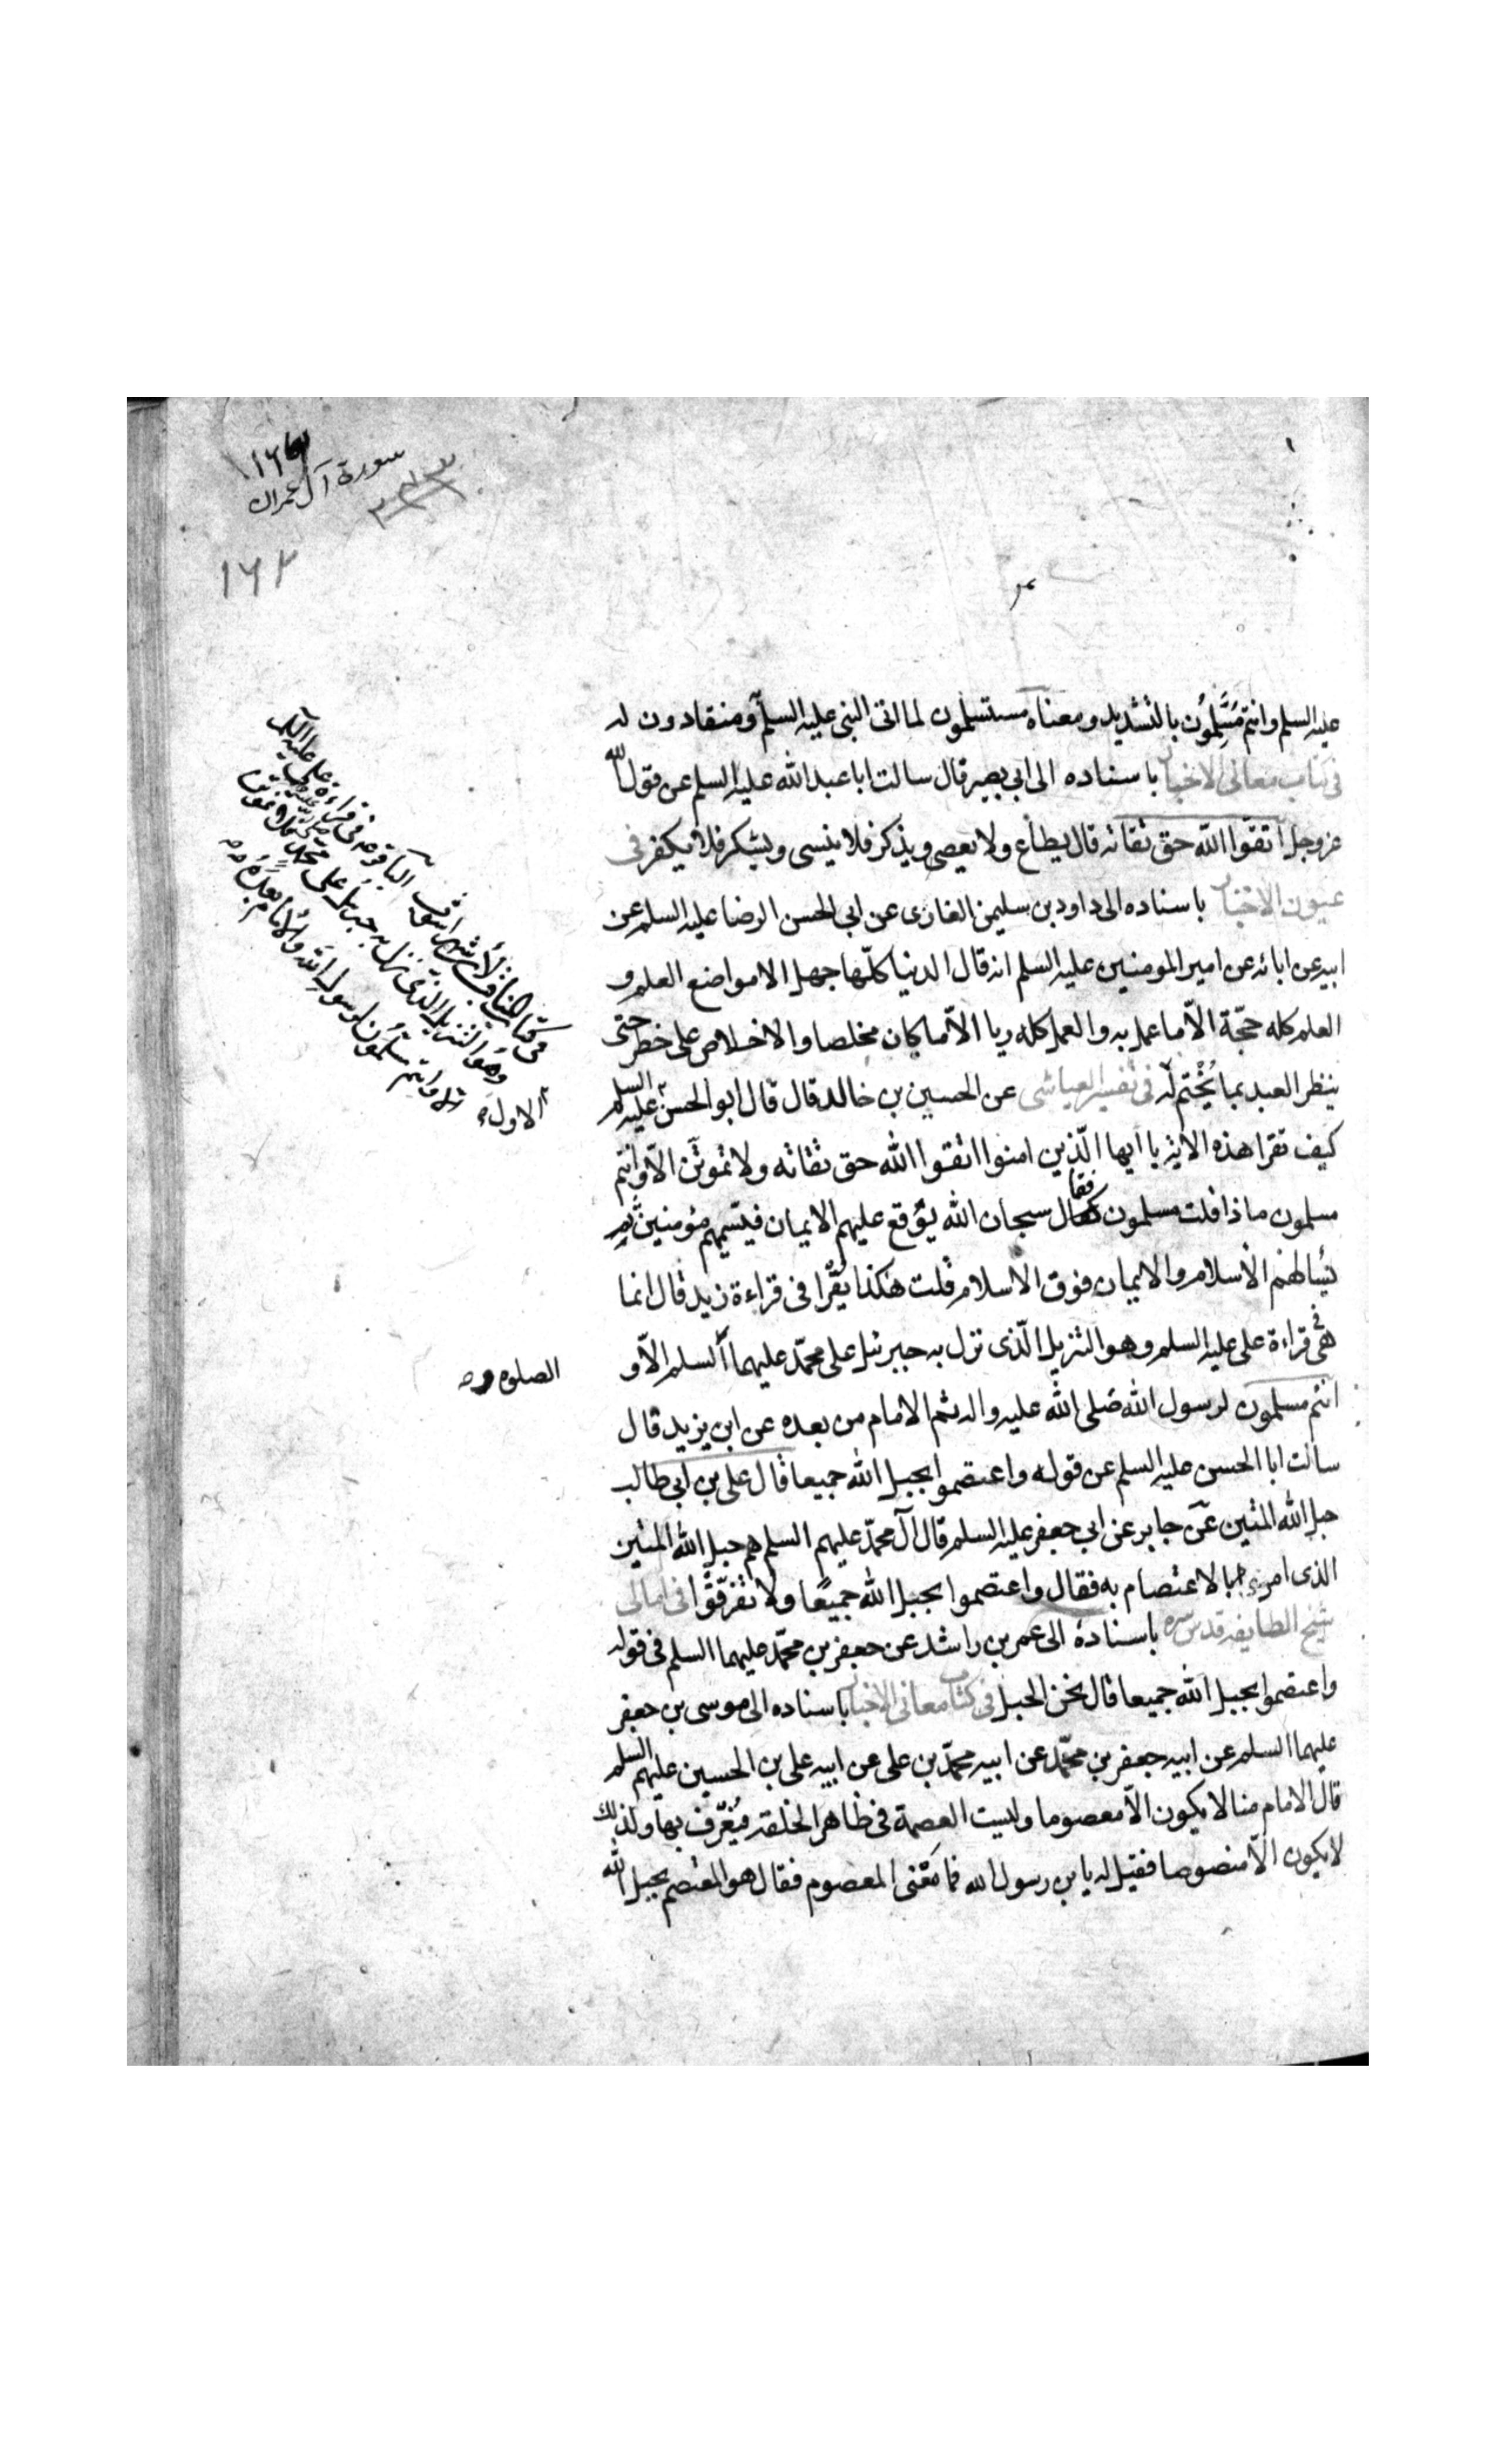 ١٦٣
سورة آل عمران
١٦٢
عليه السلم وانتم مُسَّلِمُون بالتشديد ومعناه مستسلمون لما اتى النبى عليه السلم ومنقادون له
فى كتاب معانى الاخبار باسناده الى ابى بصير قال سالت ابا عبد الله عليه السلم عن قول الله
عزوجل اتقوا الله حق تقاته قال يطاع ولا يعصى ويذكر فلا ينسى ويشكر فلا يكفر فى
عيون الاخبار باسناده الى داود بن سليمن الغازى عن ابى الحسن الرضا عليه السلم عن
ابيه عن ابائه عن امير المومنين عليه السلم انه قال الدنيا كلّها جهل الا مواضع العلم و
العلم كله حجّة الّا ما عمل به والعمل كله ريا الّا ما كان مخلصا والاخلاص على خطر حتى
ينظر العبد بما يُخْتم له فى تفسير العياشى عن الحسين بن خالد قال قال ابو الحسن عليه السلم
كيف تقرا هذه الاية يا ايها الّذين امنوا اتقوا الله حق تقاته ولا تموتَن الّا وانتم
مسلمون ماذا قلت مسلمون فقال سبحان الله يُوقع عليهم الايمان فيسّميهم مؤمنين ثم
يسالهم الاسلام والايمان فوق الاسلام قلت هكذا يُقرا فى قراءة زيد قال انما
هى فى قراءة على عليه السلم وهو التنزيل الّذى نزل به جبرئيل على محمّد عليهما السلم الّا و
انتم مسلمون لرسول الله صلى الله عليه واله ثم الامام من بعده عن ابن يزيد قال
سالت ابا الحسن عليه السلم عن قوله واعتصموا بحبل الله جميعا قال على بن ابى طالب
حبل الله المتين عن جابر عن ابى جعفر عليه السلم قال آل محمّد عليهم السلم هم حبل الله المتين
الذى امر بالاعتصام به فقال واعتصموا بحبل الله جميعًا ولا تفرّقوا فى امالى
شيخ الطايفه قدس سره باسناده الى عمر بن راشد عن جعفر بن محمّد عليهما السلم فى قوله
واعتصموا بحبل الله جميعا قال نحن الحبل فى كتاب معانى الاخبار باسناده الى موسى بن جعفر
عليهما السلم عن ابيه جعفر بن محمّد عن ابيه محمّد بن على عن ابيه على بن الحسين عليهم السلم
قال الامام منا لا يكون الّا معصوما وليست العصمة فى ظاهر الخلقه فيُعْرف بها ولذلك
لا يكون الّا منصوصا فقيل له يا بن رسول الله فما معْنى المعصوم فقال هو المعتصم بحبل الله
المناقب لأبن شهر آشوب الباقر فى قراءة على عليه
وهو التنزيل الذى نزل به جبرئيل على محمد
الا وانتم مسلمون لرسول الله والامام بعده
الاول
الصلوه